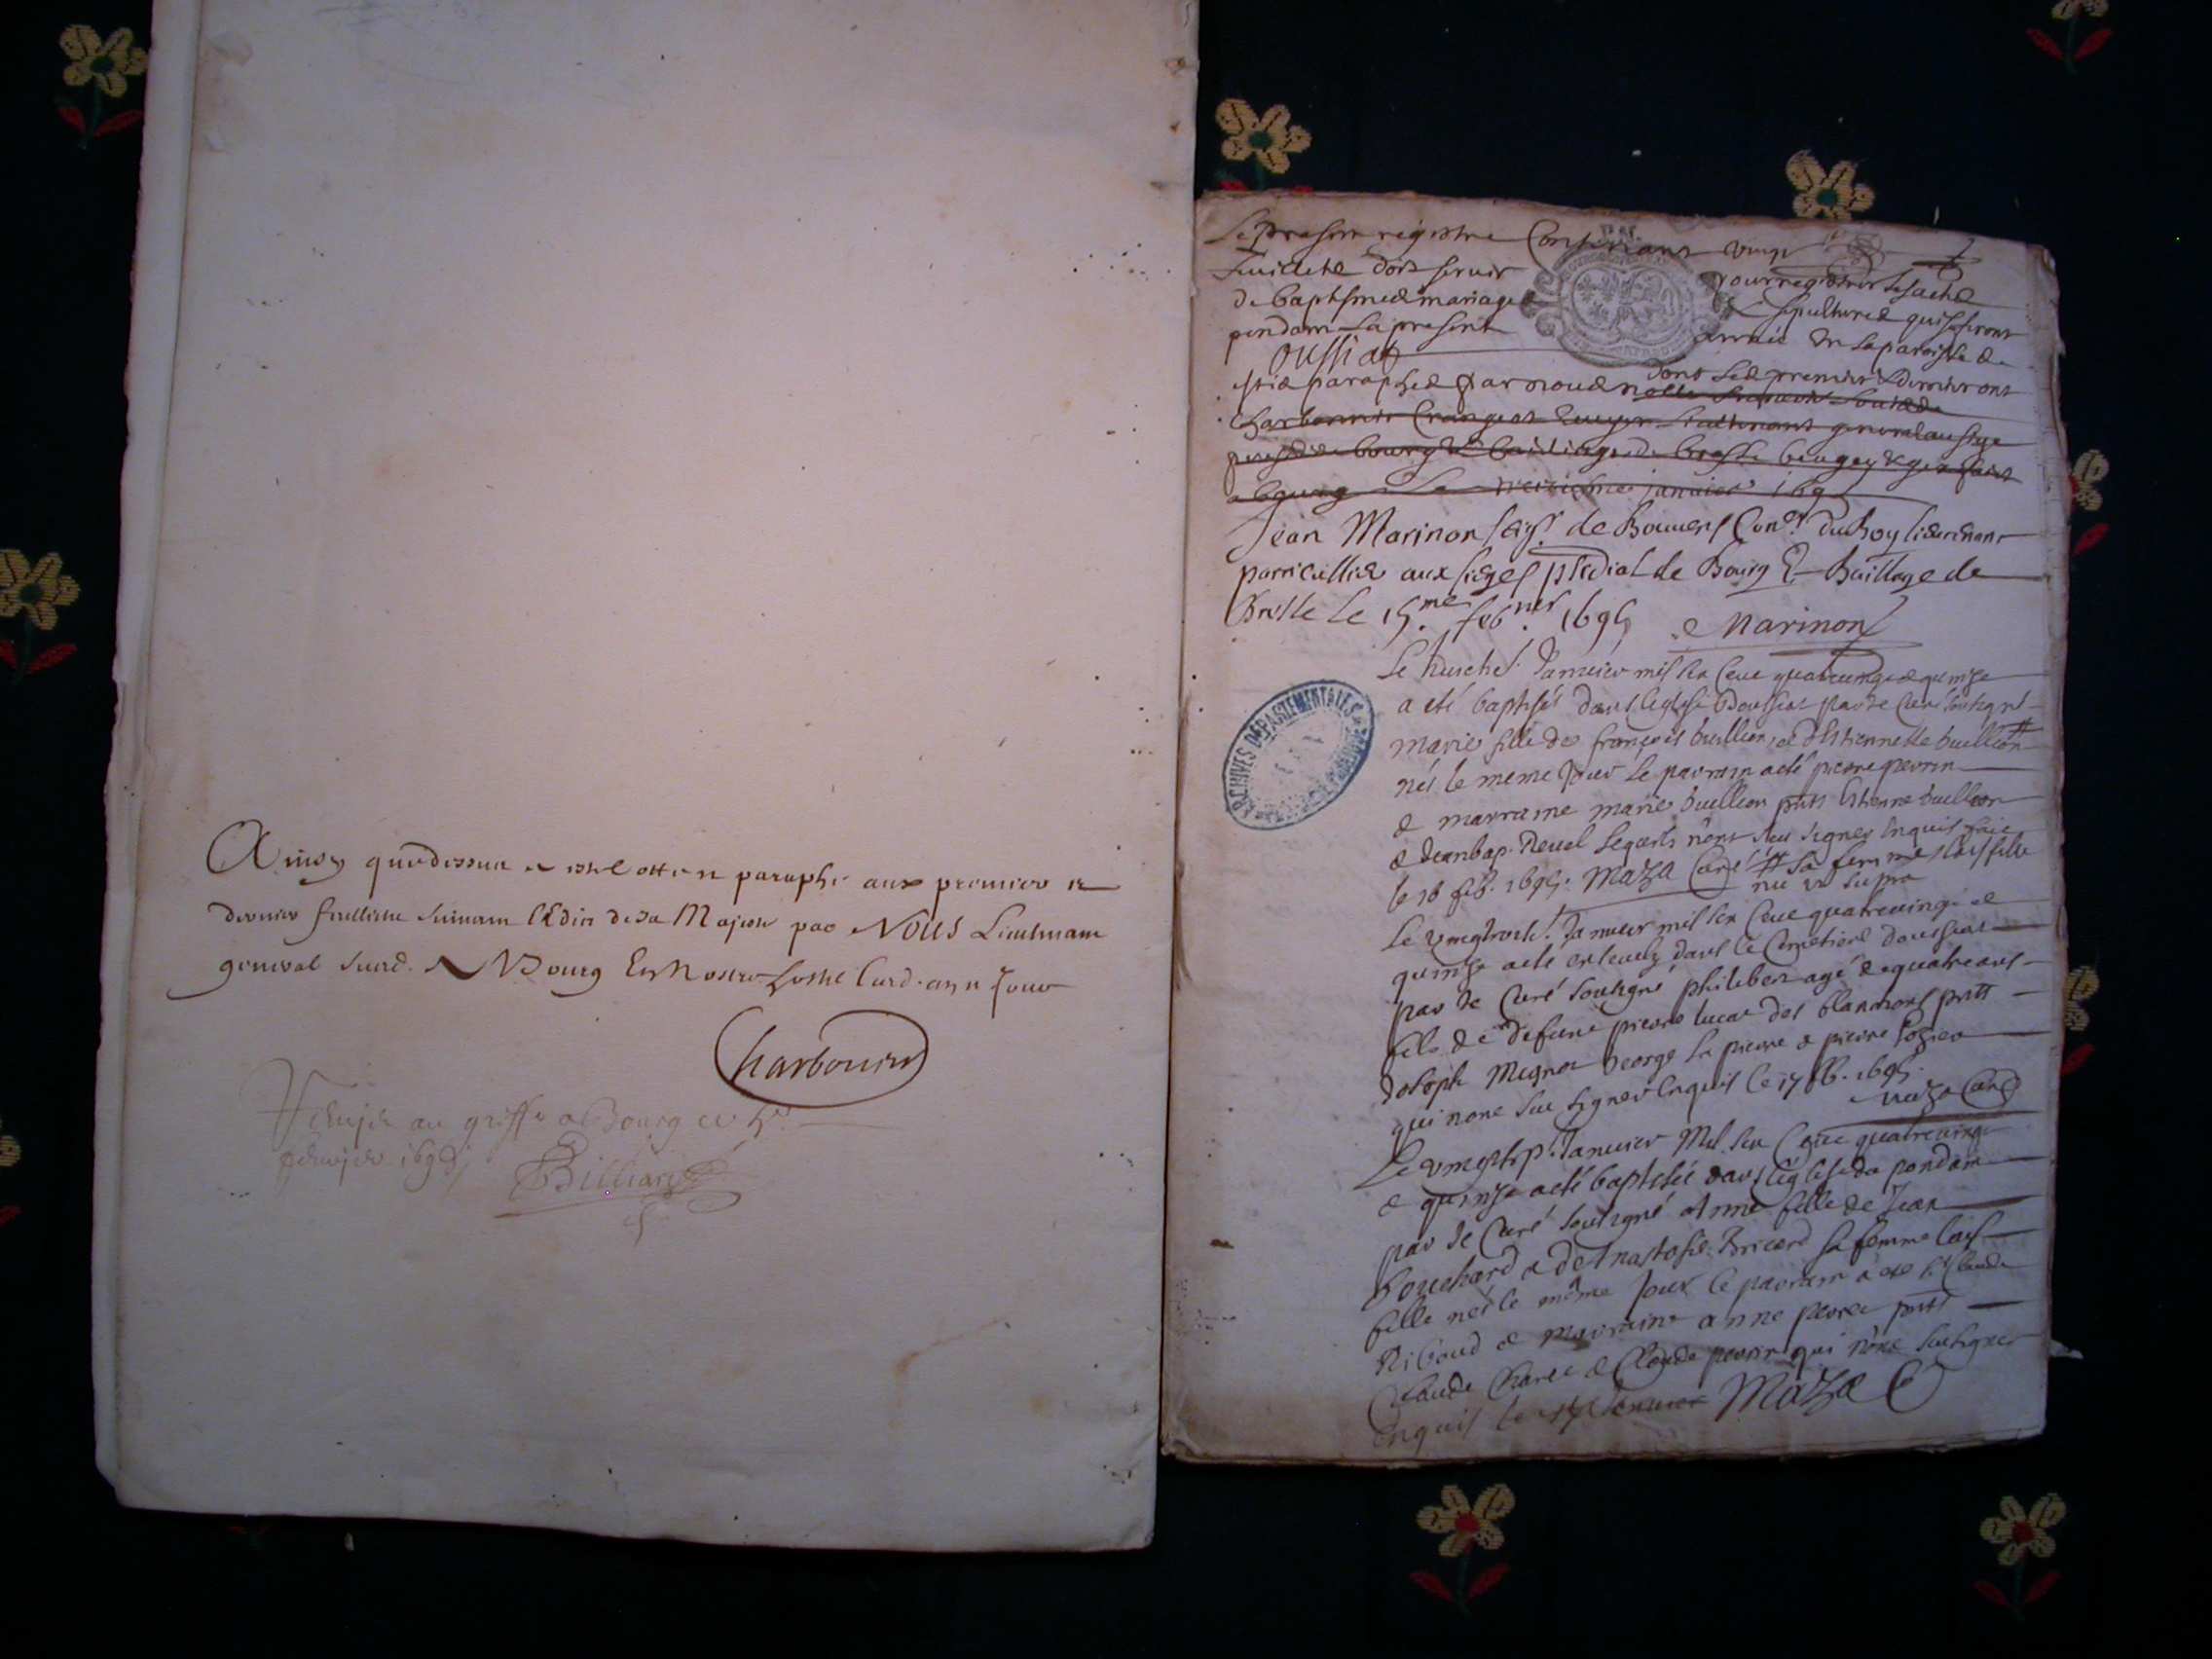 Ainsy que dessus a esté et paraphé aux premier et
dernier feuillets suivant l'Edit de sa Majesté par Nous Lieutenant
general susd. A Bourg En Nostre hostel lesd. an et jour
Charbonnier
au greffe a Bourg ce
1695 Billiard
Le present registre Contenant vingt
feuillets doit servir pour registrer les actes
de baptesmes mariages & sepultures qui se feront
pendant la presente année en la paroisse de
Oussiat dont les premier & dernier ont
estés paraphés par nous
Charbonnier Crangeat Escuyer Lieutenant general au siege
presidial de bourg & bailliage de bresse beugey & gex fait
a bourg le janvier 169
Jean Marinon seigr. de Bouvens Coner. du Roy lieutenant
particullier aux sieges psidial de Bourg Et Bailliage de
Bresse le 15.me feb.rier 1695 Marinon
ARCHIVES DEPARTEMENTALES
Le Janvier mil six cent quatrevingt & quinze
a eté baptisée dans l'eglise d'oussiat par le Curé soubsigné
marie fille de françois buellion et d'Estiennette buellion #
née le meme jour le parrain a eté pierre perrin
& marraine marie buellion pnts Estienne buellion
& Jean bap. Revel lesquels n'ont sceu signer Enquis fait
le 16 feb. 1695. Maza Curé # sa femme
ut supra
Le vingt Janvier mil six Cent quatrevingt et
quinze a eté ensevely dans le Cimetiere d'oussiat
par le Curé soubsigné philibert agé de quatre ans
fils de defunt pierre lucas des blanchons pnts
Joseph Mignot George la pierre & pierre
qui n'ont sceu signer Enquis le 17 feb. 1695.
Maza Curé
Le vingt sept Janvier Mil six Cent quatrevingt
& quinze a eté baptisée dans l'église du pondain
par le Curé soubsigné Anne fille de Jean
Bouchard & de Anastasie Bricard sa femme
fille née le même jour le parrain a eté sr Claude
Riboud & marraine anne perret pnts
Claude & Claude perrin qui n'ont sceu signer
Enquis le Janvier Maza C